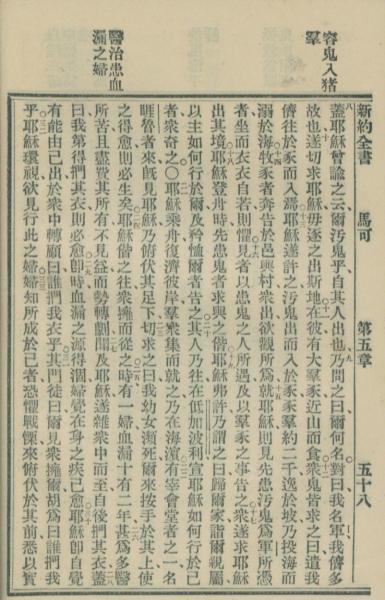 容鬼入猪
羣
醫治患血
漏之婦
新約全書 馬可 第五章 五十八
蓋耶穌曾諭之云爾污鬼乎自其人出也乃問之曰爾何名對曰我名軍我儕多
故也遂切求耶穌毋逐之出斯地在彼有大羣豕近山而食衆鬼皆求之曰遣我
儕往於豕而入焉耶穌遂許之污鬼出而入於豕豕羣約二千逸於坡乃投海而
溺於海牧豕者奔告於邑與村衆出欲觀所爲就耶穌則見先患污鬼爲軍所憑
者坐而衣衣自若則懼見者以患鬼之人所遇及以羣豕之事告之衆遂求耶穌
出其境耶穌登舟時先患鬼者求與之偕耶穌弗許乃謂之曰歸爾家詣爾親屬
以主如何行於爾及矜恤爾者告之其人乃往在低加波利宣耶穌如何行於己
者衆奇之〇耶穌乘舟復濟彼岸羣衆集而就之乃在海濱有宰會堂者之一名
睚魯者來旣見耶穌乃俯伏其足下切求之曰我幼女瀕死爾來按手於其上使
之得愈則必生矣耶穌偕之往衆擁而從之時有一婦血漏十有二年甚爲多醫
所苦且盡費其所有不見益而勢轉劇聞及耶穌遂雜衆中而至自後捫其衣蓋
曰我第得捫其衣則必愈卽時血漏之源得涸婦覺在身之疾已愈耶穌卽自覺
有能由己出於衆中轉顧曰誰捫我衣乎其門徒曰爾見衆擁爾胡爲曰誰捫我
乎耶穌環視欲見行此之婦婦知所成於己者恐懼戰慄來俯伏於其前悉以實